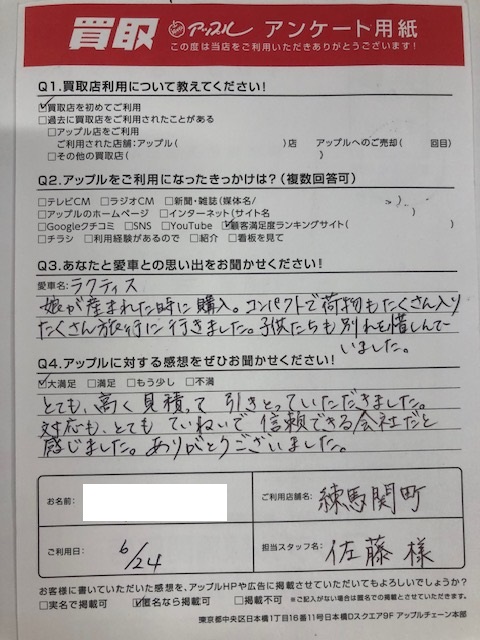 買取 アップル アンケート用紙
この度は当店をご利用いただきありがとうございます！
Q1.買取店利用について教えてください！
☑買取店を初めてご利用
□過去に買取店をご利用されたことがある
□アップル店をご利用
ご利用された店舗:アップル( )店 アップルへのご売却( 回目)
□その他の買取店( )
Q2.アップルをご利用になったきっかけは？(複数回答可)
□テレビCM □ラジオCM □新聞・雑誌(媒体名/ )
□アップルのホームページ □インターネット(サイト名 )
□Googleクチコミ □SNS □YouTube ☑顧客満足度ランキングサイト( )
□チラシ □利用経験があるので □紹介 □看板を見て
Q3.あなたと愛車との思い出をお聞かせください！
愛車名:ラクティス
娘が産まれた時に購入。コンパクトで荷物もたくさん入り
たくさん旅行に行きました。子供たちも別れを惜しんで
いました。
Q4.アップルに対する感想をぜひお聞かせください！
☑大満足 □満足 □もう少し □不満
とても、高く見積って引きとっていただきました。
対応も、とてもていねいで信頼できる会社だと
感じました。ありがとうございました。
お名前: ご利用店舗名: 練馬関町
ご利用日: 6/24 担当スタッフ名: 佐藤 様
お客様に書いていただいた感想を、アップルHPや広告に掲載させていただいてもよろしいでしょうか？
□実名で掲載可 ☑匿名なら掲載可 □掲載不可 ※ご記入がない場合は匿名での掲載とさせていただきます。
東京都中央区日本橋1丁目16番11号日本橋Dスクエア9F アップルチェーン本部